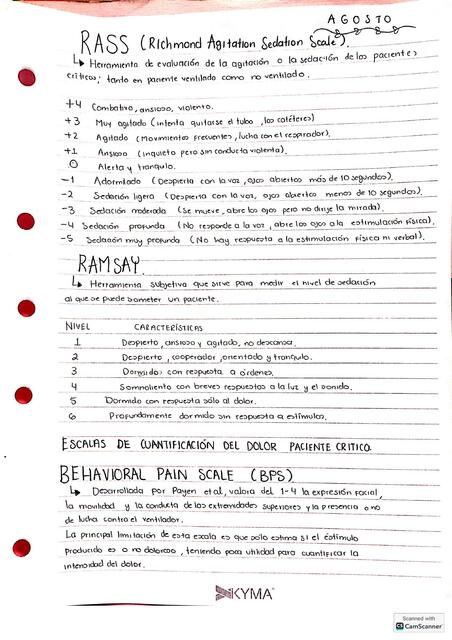 AGOSTO
RASS (Richmond Agitation Sedation Scale).
↳ Herramienta de evaluación de la agitación o la sedación de los pacientes
críticos; tanto en paciente ventilado como no ventilado.
+4 Combativo, ansioso, violento.
+3 Muy agitado (intenta quitarse el tubo, los catéteres)
+2 Agitado (Movimientos frecuentes, lucha con el respirador).
+1 Ansioso (inquieto pero sin conducta violenta).
0 Alerta y tranquilo.
-1 Adormilado (Despierta con la voz, ojos abiertos más de 10 segundos).
-2 Sedación ligera (Despierta con la voz, ojos abiertos menos de 10 segundos).
-3 Sedación moderada (Se mueve, abre los ojos pero no dirige la mirada).
-4 Sedación profunda (No responde a la voz, abre los ojos a la estimulación física).
-5 Sedación muy profunda (No hay respuesta a la estimulación física ni verbal).
RAMSAY.
↳ Herramienta subjetiva que sirve para medir el nivel de sedación
al que se puede someter un paciente.
NIVEL CARACTERÍSTICAS
1 Despierto, ansioso y agitado, no descansa.
2 Despierto, cooperador, orientado y tranquilo.
3 Dormido con respuesta a órdenes.
4 Somnoliento con breves respuestas a la luz y el sonido.
5 Dormido con respuesta sólo al dolor.
6 Profundamente dormido sin respuesta a estímulos.
ESCALAS DE CUANTIFICACIÓN DEL DOLOR PACIENTE CRITICO.
BEHAVIORAL PAIN SCALE (BPS)
↳ Desarrollada por Payen et al, valora del 1-4 la expresión facial,
la movilidad y la conducta de las extremidades superiores y la presencia o no
de lucha contra el ventilador.
La principal limitación de esta escala es que sólo estima si el estímulo
producido es o no doloroso, teniendo poca utilidad para cuantificar la
intensidad del dolor.
KYMA
Scanned with
CS CamScanner